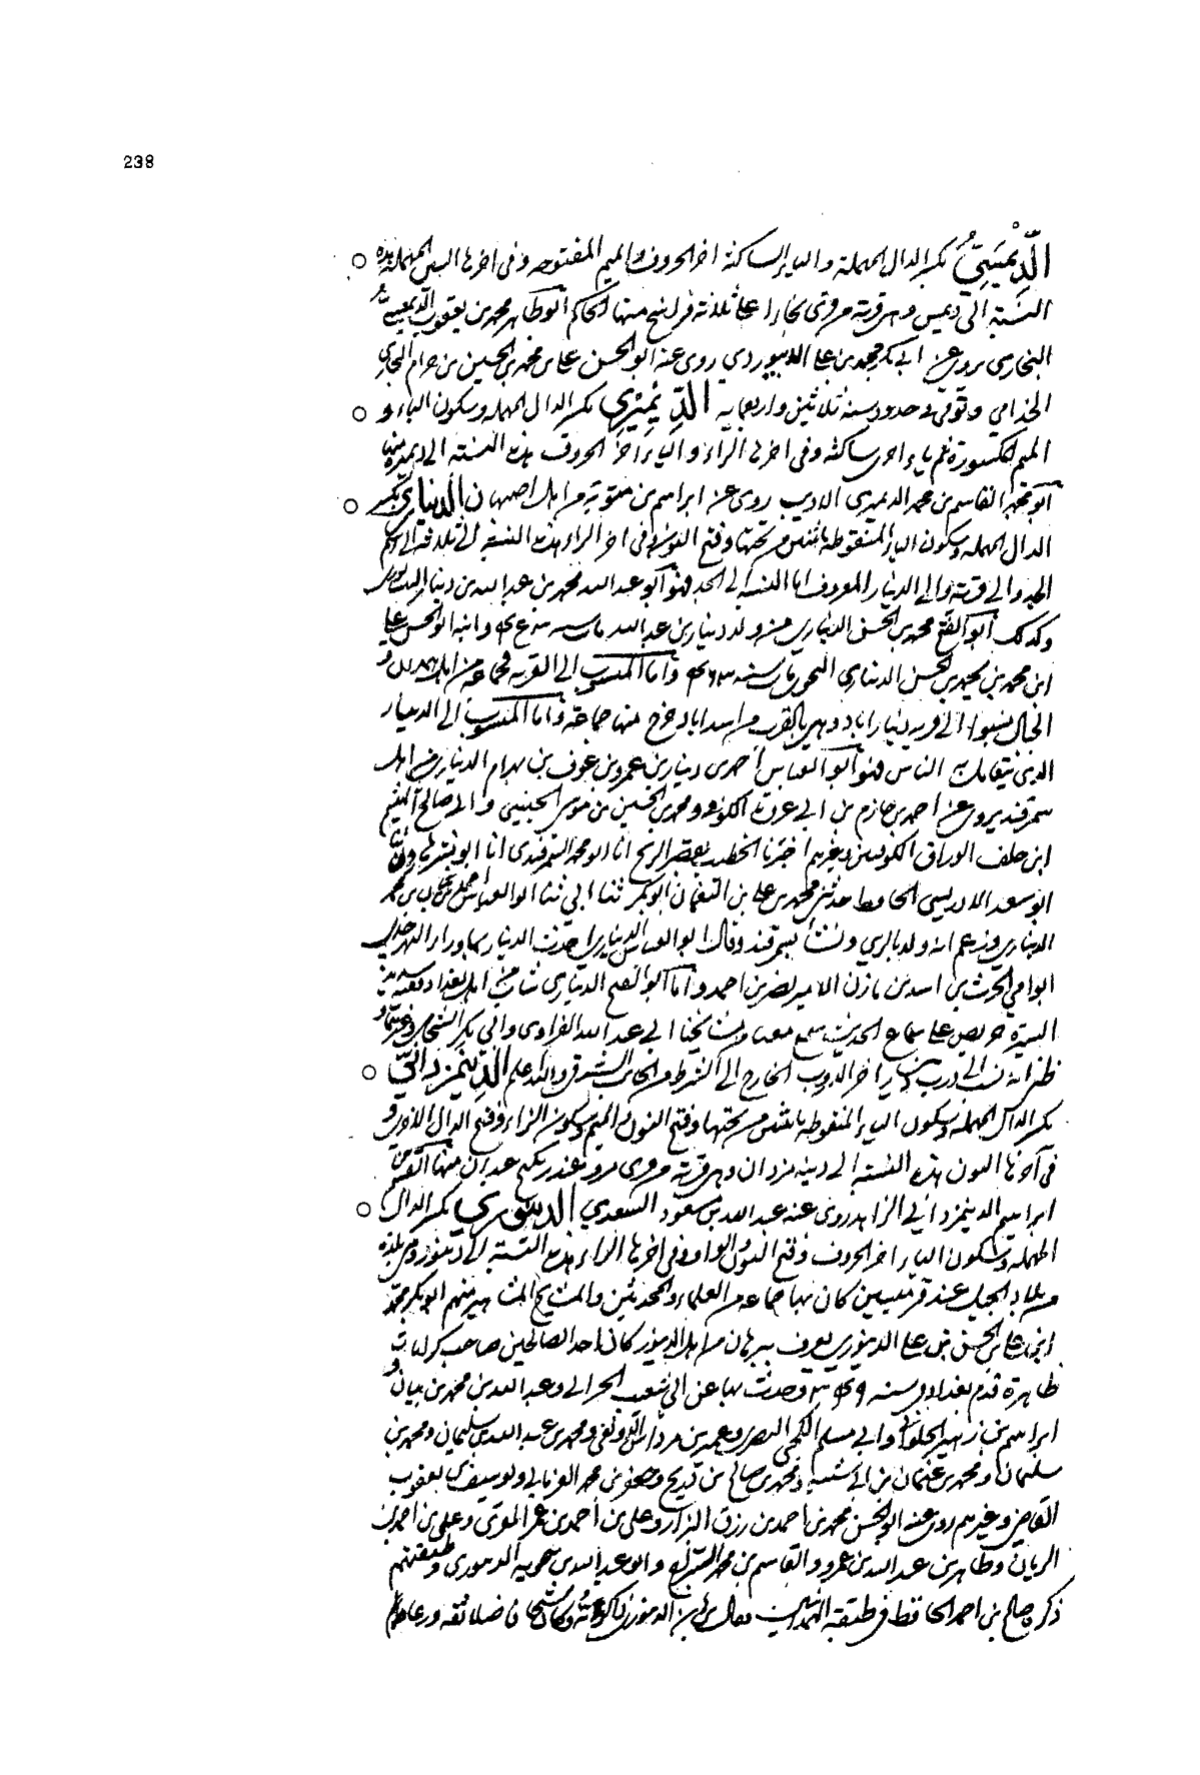 238
الدِّيْمَسِيُّ بكسر الدال المهملة والياء الساكنة اخر الحروف والميم المفتوحه وفى اخرها السين المهملة هذه
النسبة الى ديمس وهى قرية من قرى بخارا على ثلاثة فراسخ منها الحاكم ابو طاهر محمد بن يعقوب الديمسى
البخارى يروى عن ابى بكر محمد بن على الابيوردي روى عنه ابو الحسن على بن محمد بن الحسين بن حرام البخارى
الجذامي وتوفى فى حدود سنة ثلاثين واربعماية الدِّيْمِيْرِي بكسر الدال المهملة وسكون الياء و
الميم المكسورة ثم ياء اخرى ساكنة وفى اخرها الراء والياء آخر الحروف هذه النسبة الى ديميره منها
ابو محمد القاسم بن محمد الديميرى الاديب روى عن ابراهيم بن متوية من اهل اصبهان الديناري بكسر
الدال المهملة وسكون الياء المنقوطة باثنتين من تحتها وفتح النون وفى اخرها الراء هذه النسبة الى ثلاثة الى اسم
الجد والى قرية والى الدينار المعروف اما النسبة الى الجد فهو ابو عبد الله محمد بن عبد الله بن دينار النيسابورى
وكذلك ابو الفتح محمد بن الحسن الديناري من ولد دينار بن عبد الله مات سنه وابنه ابو الحسن على
ابن محمد بن الحسن الدينارى النحوى مات سنه ٤٦٣ واما المنسوب الى القريه فجماعه من اهل و
الجبال ينسبوا الى قريه دينارآباد وهى بالقرب من اسداباد خرج منها جماعة واما المنسوب الى الدينار
الذى يتعامل به الناس فهو ابو العباس احمد بن دينار بن عمرو بن عوف بن بهرام الدينارى من اهل
سمرقند يروى عن احمد بن حازم بن ابى غرزة الكوفى ومحمد بن الحسين بن موسى الحنينى وابى صالح الهيثم
ابن خلف الوراق الكوفيين وغيرهم اخبرنا الخطيب بقصر الريح انا ابو محمد السمرقندى انا ابو بشر
ابو سعد الادريسى الحافظ حدثنى محمد بن على بن النعمان ابو بكر ثنا ابي ثنا ابو العباس
الديناري وزعم انه ولد بالري ونشأ بسمرقند وقال ابو العباس الدينارى احدثت الدينار بما وراء النهر
ابو امي الحرث بن اسد بن مازن الامير نصر بن احمد واما ابو الفتح الدينارى شاب من اهل بغداد فقيه سديد
السيرة حريص على سماع الحديث سمع معنا من مشايخنا ابى عبد الله الفراوى وابى بكر الشحامى وغيرهما و
ظنى انه نسب الى درب دينار اخر الدروب الخارج الى الشط من الجانب الشرقى والله اعلم الدِّيْنَمَزْدَانِيّ
بكسر الدال المهملة وسكون الياء المنقوطة باثنتين من تحتها وفتح النون والميم وسكون الزاء وفتح الدال الاخرى و
فى آخرها النون هذه النسبة الى دينه مزدان وهى قرية من قرى مرو عند ريكنج عبدان منها القاسم بن
ابراهيم الدينمزداني الزاهد روى عنه عبد الله بن مسعود السعدي الدينوري بكسر الدال
المهملة وسكون الياء اخر الحروف وفتح النون والواو وفى اخرها الراء هذه النسبة الى دينور وهى بلدة
من بلاد الجبل عند قرميسين كان بها جماعه من العلماء والمحدثين والمشايخ المشاهير منهم ابو بكر محمد
ابن على بن الحسن بن على الدينوري يعرف ببرهان من اهل الدينور كان احد الصالحين صاحب كرامات
ظاهرة قدم بغداد فى سنه ٣٤٩ وحدث بها عن ابى شعيب الحرانى وعبد الله بن محمد بن بيان و
ابراهيم بن زهير الحلوانى وابى مسلم الكجى البصرى وعمير بن مرداس الدونقى ومحمد بن عبد الله بن سليمان ومحمد بن
سليمان ومحمد بن عثمان بن ابى شيبه ومحمد بن صالح بن ذريح وجعفر بن محمد الفريابى ويوسف بن يعقوب
القاضى وغيرهم روى عنه ابو الحسن محمد بن احمد بن رزق البزاز وعلى بن احمد بن عمر المقرى وعلى بن احمد بن
الريان وطاهر بن عبد الله بن عمر والقاسم بن محمد السراج وابو عبد الله بن الدينورى وطبقتهم
ذكره صالح بن احمد الحافظ فى طبقة الهمدانيين فقال برهان الدينورى كتبت عنه وكان شيخا فاضلا ثقه ورعا